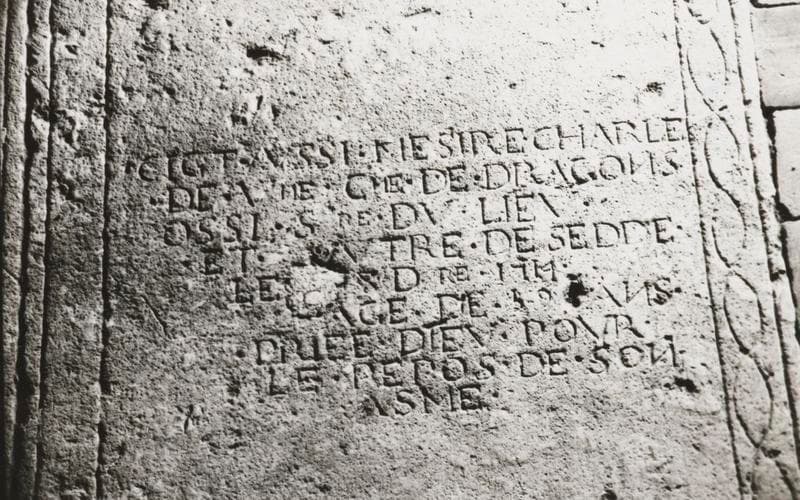 CIGT · AVSSI · MESIRE CHARLE
· DE · V NE · CIE · DE · DRAGONS
OSSI · S RE · DV · LIEV
ET · TRE · DE SEDDE ·
LE D RE ·
AGE · DE · ANS ·
· PRIEE DIEV · POVR ·
LE · REPOS · DE · SON
ASME ·